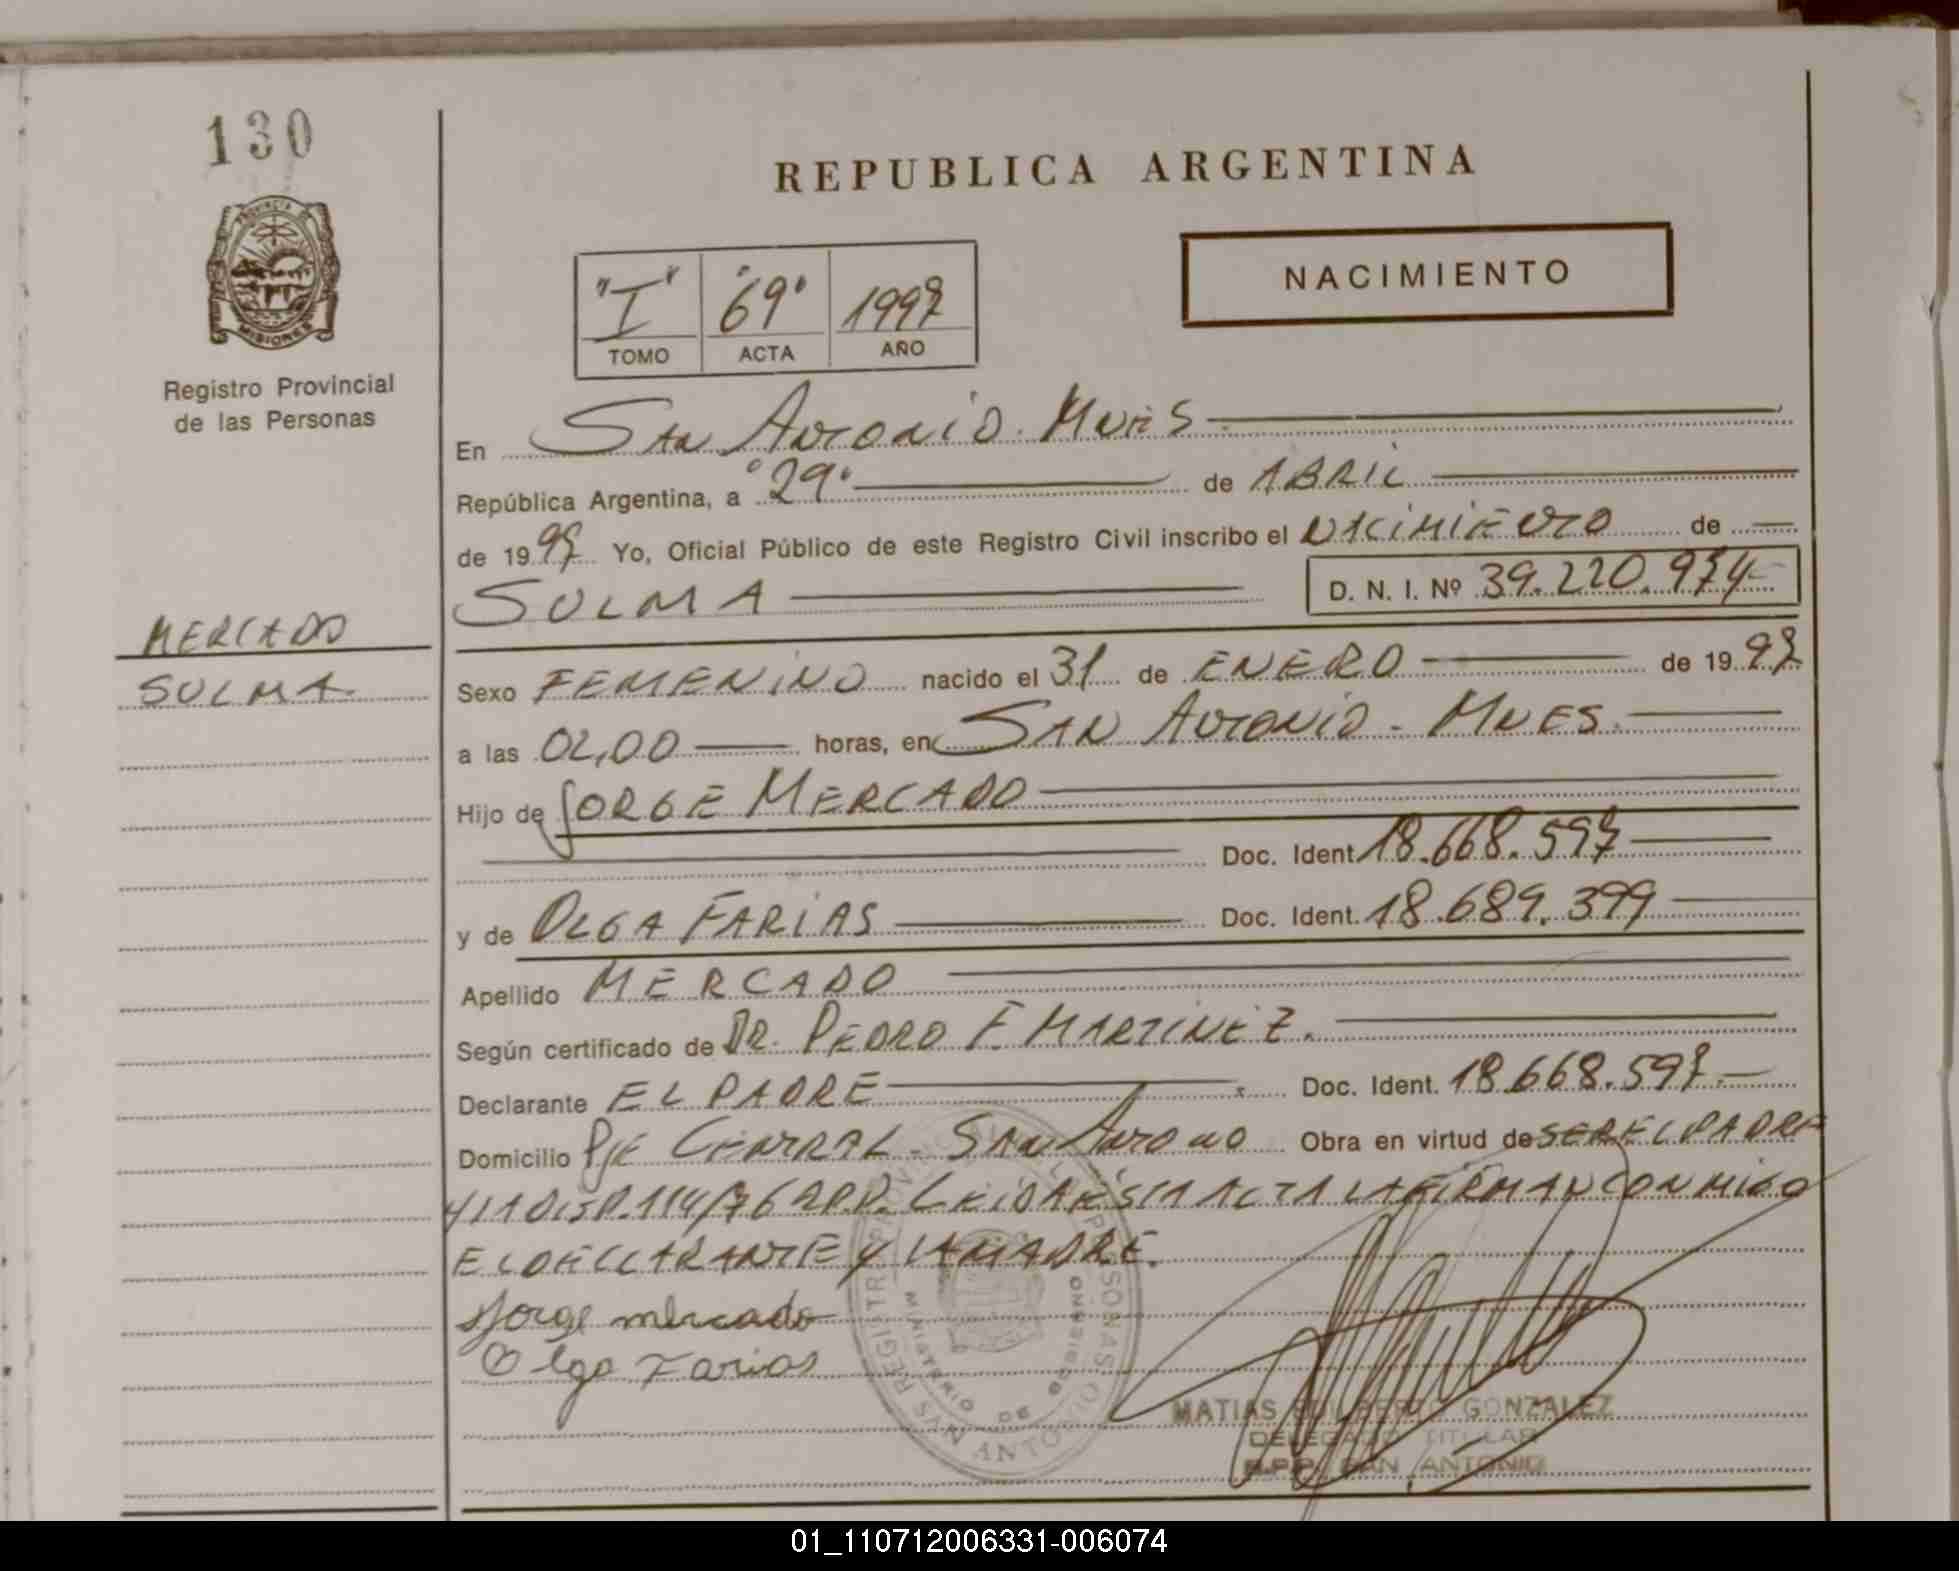 130
REPUBLICA ARGENTINA
PROVINCIA DE
MISIONES
Registro Provincial
de las Personas
"I" "69" 1997
TOMO ACTA AÑO
NACIMIENTO
En San Antonio. Mnes
República Argentina, a "29" de ABRIL
de 1997 Yo, Oficial Público de este Registro Civil inscribo el NACIMIENTO de
SULMA
D. N. I. Nº 39.220.974
MERCADO
SULMA
Sexo FEMENINO nacido el 31 de ENERO de 1997
a las 02,00 horas, en SAN ANTONIO - MNES.
Hijo de JORGE MERCADO
Doc. Ident 18.668.597
y de OLGA FARIAS Doc. Ident. 18.689.399
Apellido MERCADO
Según certificado de DR. PEDRO F. MARTINEZ.
Declarante EL PADRE. Doc. Ident. 18.668.597.-
Domicilio Pje CENTRAL - SAN Antonio Obra en virtud de SER EL PADRE
Y LA DISP. 114/76 RPP. LEIDA ESTA ACTA LA FIRMAN CONMIGO
EL DECLARANTE Y LA MADRE.
Jorge mercado
Olga Farias
REGISTRO PROVINCIAL DE LAS PERSONAS
MINISTERIO DE GOBIERNO
SAN ANTONIO
MATIAS GONZALEZ
DELEGADO TITULAR
R.P.P. SAN ANTONIO
01_110712006331-006074